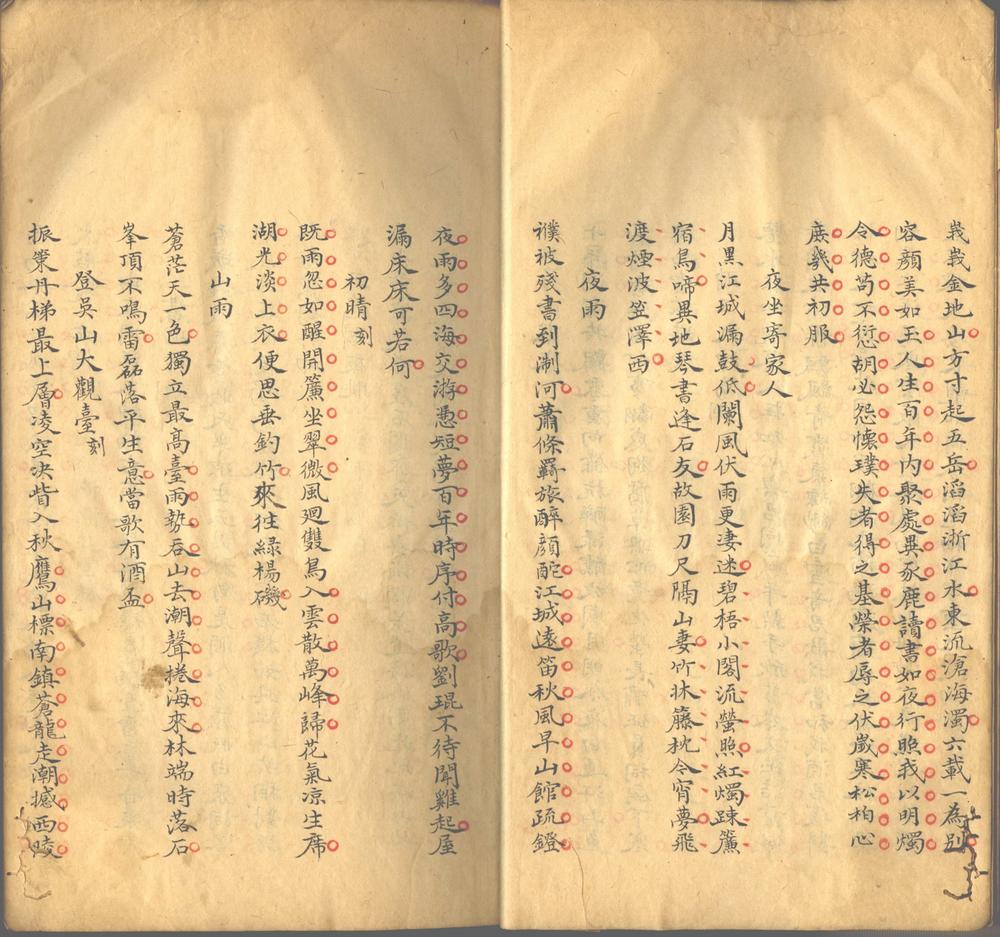 峩峩金地山方寸起五岳滔滔浙江水東流滄海濁六載一為別
容顏美如玉人生百年內聚處異豕鹿讀書如夜行照我以明燭
令德苟不愆胡必怨懷璞失者得之基榮者辱之伏嵗寒松柏心
庻幾共初服
夜坐寄家人
月黑江城漏鼓低闌風伏雨更凄迷碧梧小閣流螢照紅燭踈簾
宿鳥啼異地琴書逢石友故園刀尺隔山妻竹牀籐枕今宵夢飛
渡煙波笠澤西
夜雨
襆被殘書到淛河蕭條羈旅醉顏酡江城遠笛秋風早山館疏鐙
夜雨多四海交游憑短夢百年時序付高歌劉琨不待聞雞起屋
漏床床可若何
初晴刻
既雨忽如醒開簾坐翠微風迴雙鳥入雲散萬峰歸花氣凉生席
湖光淡上衣便思垂釣竹來往緑楊磯
山雨
蒼茫天一色獨立最高臺雨勢吞山去潮聲捲海來林端時落石
峯頂不鳴雷磊落平生意當歌有酒盃
登吳山大觀臺刻
振策丹梯最上層凌空決眥入秋鷹山標南鎮蒼龍走潮撼西陵